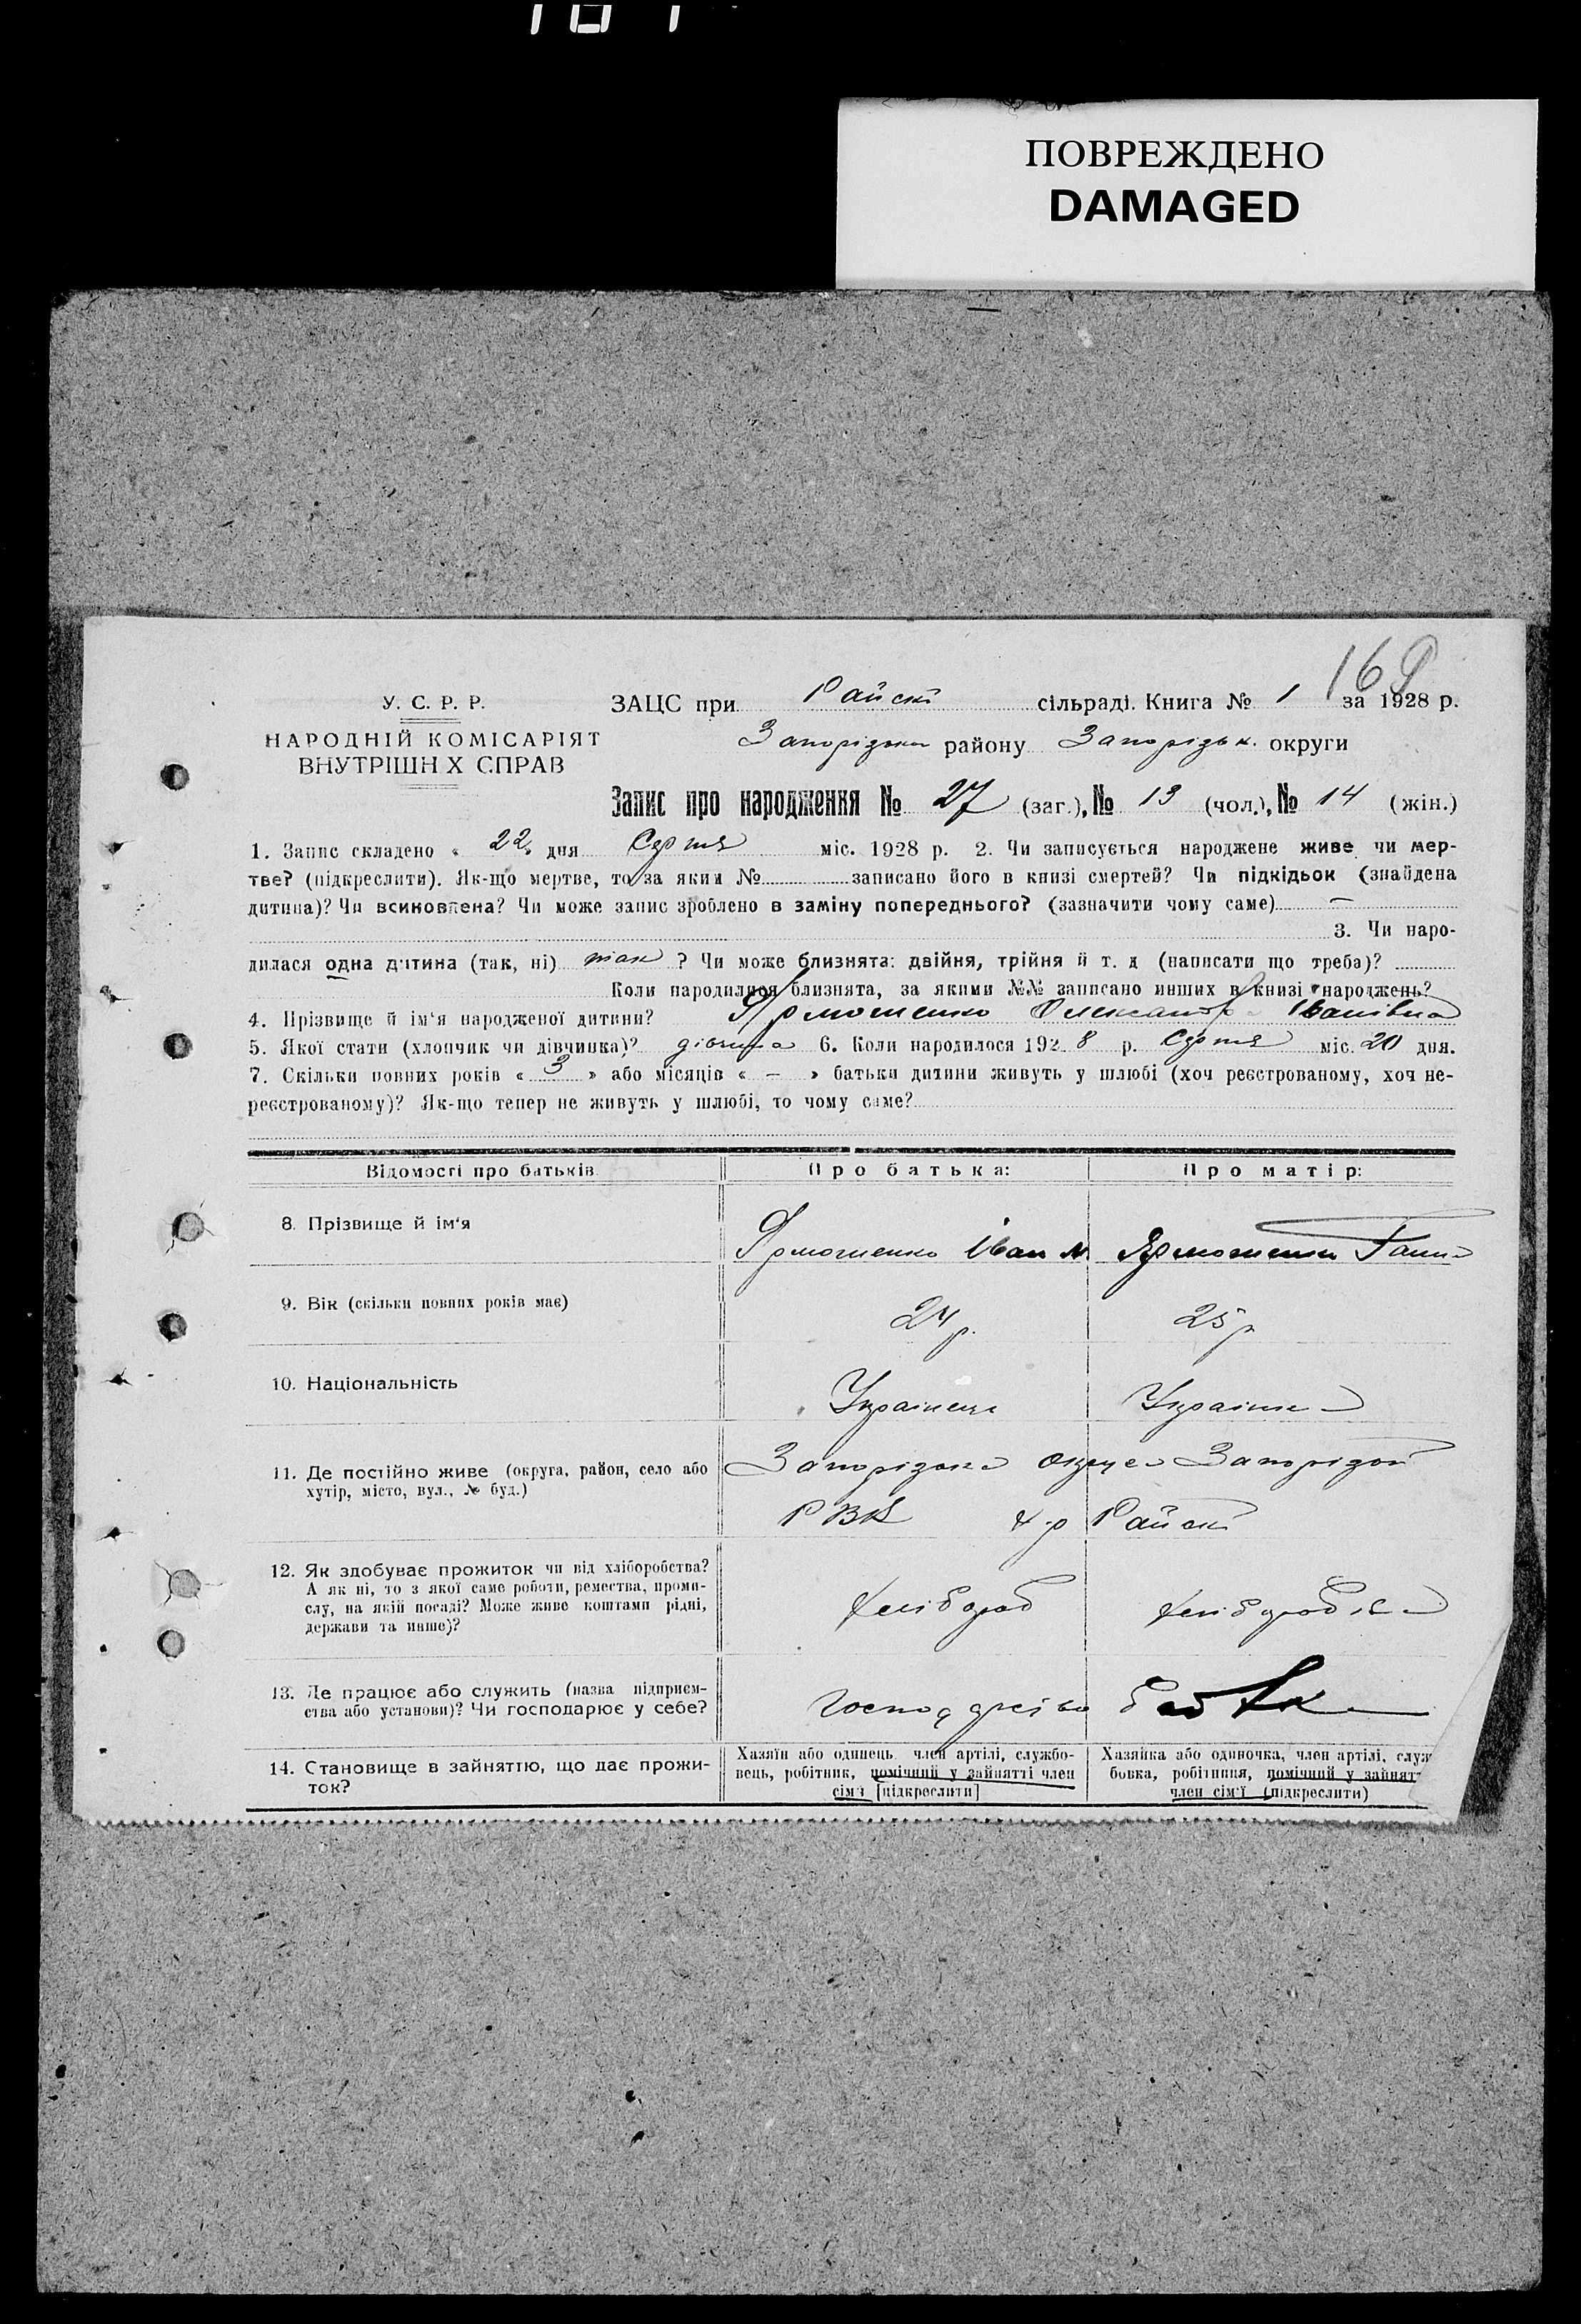 ПОВРЕЖДЕНО
DAMAGED
169
У. С. Р. Р.
НАРОДНІЙ КОМІСАРІЯТ
ВНУТРІШН Х СПРАВ
ЗАЦС при Райскі сільраді. Книга № 1 за 1928 р.
Запорізьк району Запорізьк. округи
Запис про народження № 27 (заг.), № 13 (чол.), № 14 (жін.)
1. Запис складено « 22 » дня Серпня міс. 1928 р. 2. Чи записується народжене живе чи мер-
тве? (підкреслити). Як-що мертве, то за яким № записано його в книзі смертей? Чи підкідьок (знайдена
дитина)? Чи всиновлена? Чи може запис зроблено в заміну попереднього? (зазначити чому саме) —
3. Чи наро-
дилася одна дитина (так, ні) так ? Чи може близнята: двійня, трійня й т. д (написати що треба)?
Коли народилися близнята, за якими №№ записано инших в книзі народжень?
4. Прізвище й ім'я народженої дитини? Ярмошенко Олександра Іванівна
5. Якої стати (хлопчик чи дівчинка)? дівчина 6. Коли народилося 192 8 р. Серпня міс. 20 дня.
7. Скільки повних років « 3 » або місяців « — » батьки дитини живуть у шлюбі (хоч реєстрованому, хоч не-
реєстрованому)? Як-що тепер не живуть у шлюбі, то чому саме?
Відомості про батьків Про батька: Про матір:
8. Прізвище й ім'я Ярмошенко Іван Ярмошенко Ганна
9. Вік (скільки повних років має) 24 р. 25 р
10. Національність Українець Українка
11. Де постійно живе (округа, район, село або Запорізька округа Запорізьк
хутір, місто, вул., № буд.) РВК х-р Райскі
12. Як здобуває прожиток чи від хліборобства?
А як ні, то з якої саме роботи, ремества, проми-
слу, на якій посаді? Може живе коштами рідні, хлібороб хліборобка
держави та инше)?
13. Де працює або служить (назва підприєм-
ства або установи)? Чи господарює у себе? Господарство батька
14. Становище в зайняттю, що дає прожи-
ток?
Хазяїн або одинець член артілі, службо-
вець, робітник, помічний у зайнятті член
сім'ї [підкреслити]
Хазяйка або одиночка, член артілі, служ
бовка, робітниця, помічний у зайнят
член сім'ї (підкреслити)